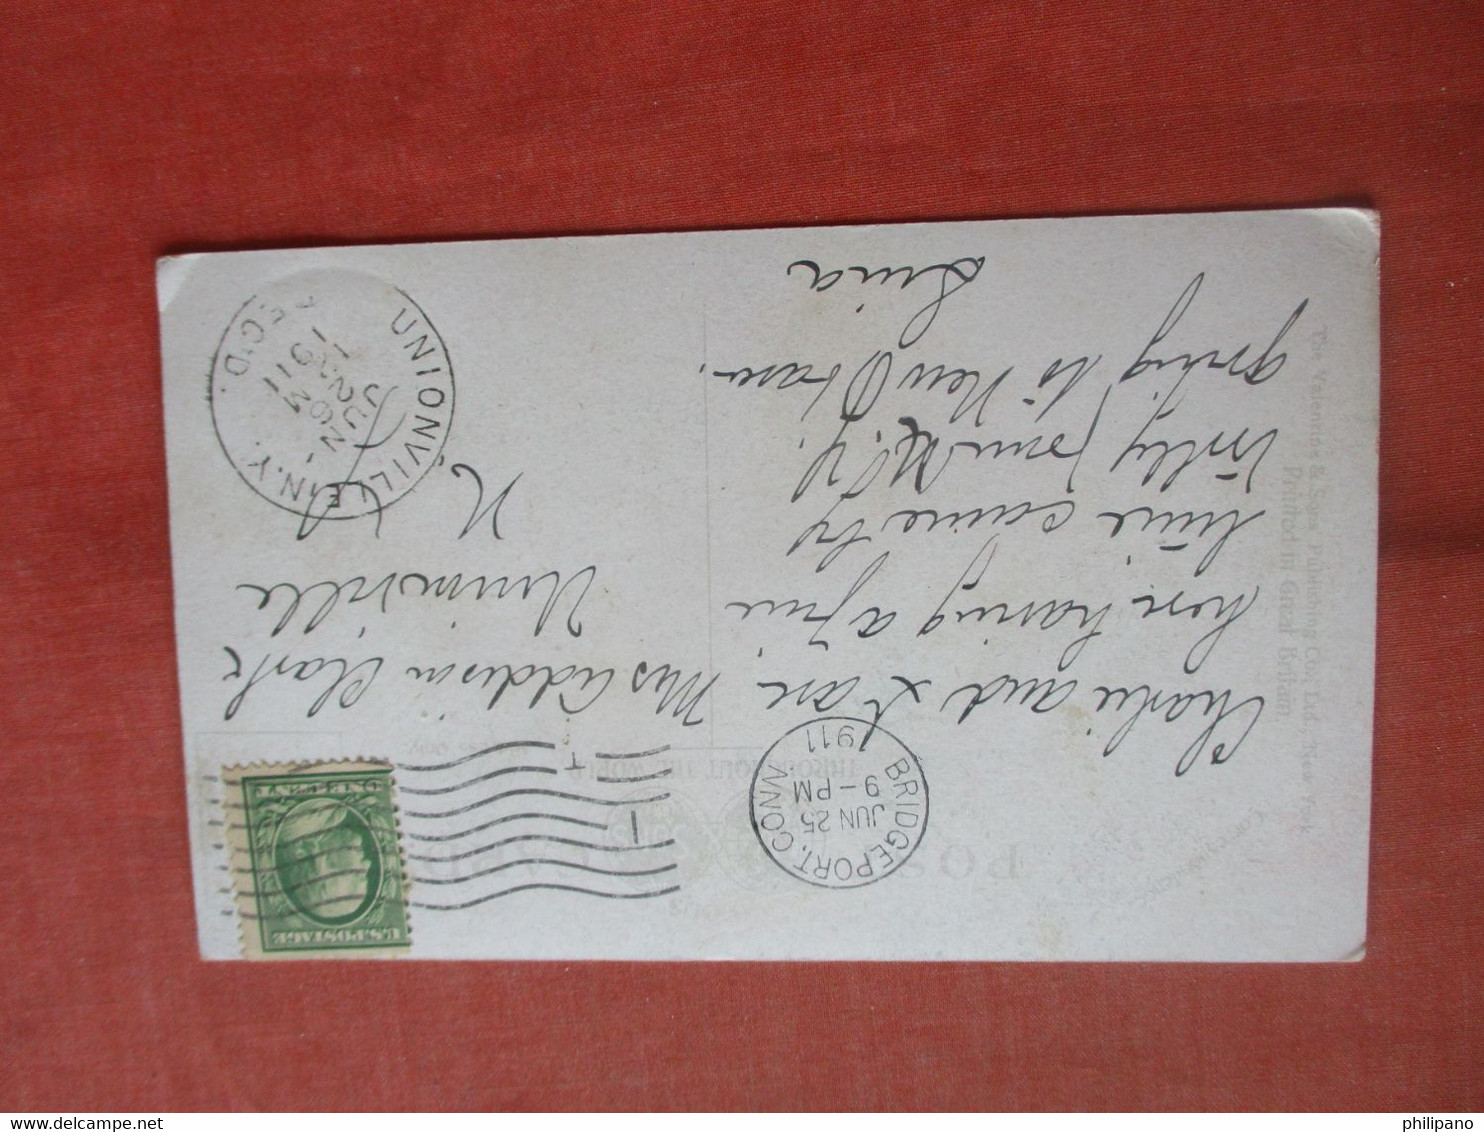 POST CARD
THROUGHOUT THE WORLD
BRIDGEPORT, CONN.
JUN 25
9-PM
1911
1
U.S. POSTAGE
Charlie and I are
here having a fine
time came by
Trolly from N.Y.
going to New Haven.
Mrs Addison Clark
Unionville
N.Y.
UNIONVILLE, N.Y.
JUN
26
1911
REC'D.
The Valentine & Sons Publishing Co., Ltd., New York
Printed in Great Britain.
philipano